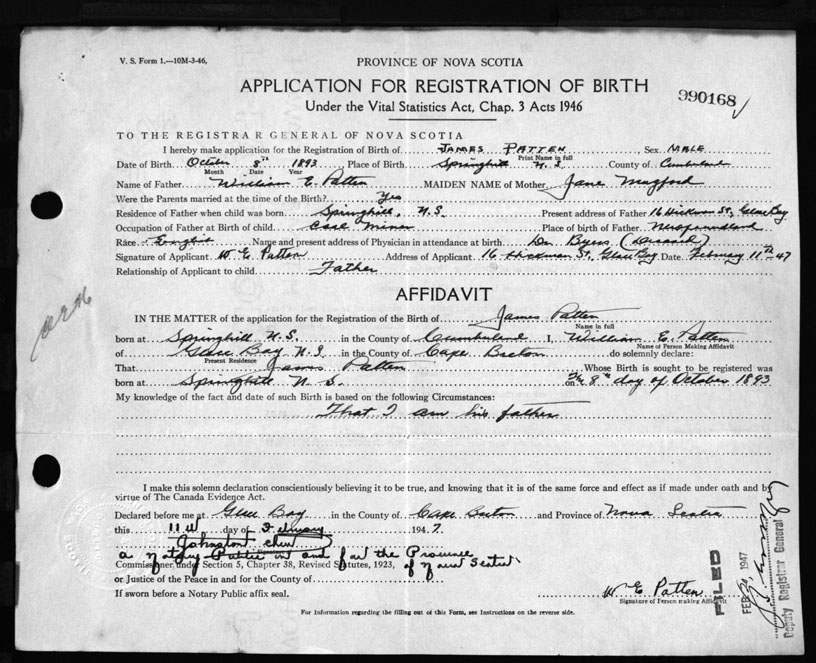 V. S. Form 1.—10M-3-46,
PROVINCE OF NOVA SCOTIA
APPLICATION FOR REGISTRATION OF BIRTH
990168
Under the Vital Statistics Act, Chap. 3 Acts 1946
TO THE REGISTRAR GENERAL OF NOVA SCOTIA
I hereby make application for the Registration of Birth of JAMES PATTEN Sex MALE
Print Name in full
Date of Birth October 8th 1893 Place of Birth Springhill N. S. County of Cumberland
Month Date Year
Name of Father William E. Patten MAIDEN NAME of Mother Jane Mugford
Were the Parents married at the time of the Birth? Yes
Residence of Father when child was born Springhill, N.S. Present address of Father 16 Hickman St, Glace Bay
Occupation of Father at Birth of child Coal Miner Place of birth of Father Newfoundland
Race English Name and present address of Physician in attendance at birth Dr. Byers (Deceased)
Signature of Applicant W E Patten Address of Applicant 16 Hickman St, Glace Bay Date February 11th 47
Relationship of Applicant to child Father
AFFIDAVIT
IN THE MATTER of the application for the Registration of the Birth of James Patten
Name in full
born at Springhill N.S. in the County of Cumberland I, William E. Patten
Name of Person Making Affidavit
of Glace Bay N.S. in the County of Cape Breton do solemnly declare:
Present Residence
That James Patten Whose Birth is sought to be registered was
born at Springhill N. S. on the 8th day of October 1893
My knowledge of the fact and date of such Birth is based on the following Circumstances:
That I am his father
I make this solemn declaration conscientiously believing it to be true, and knowing that it is of the same force and effect as if made under oath and by
virtue of The Canada Evidence Act.
Declared before me at Glace Bay in the County of Cape Breton and Province of Nova Scotia
this 11th day of February 1947.
Johnston
a Notary Public in and for the Province
Commissioner under Section 5, Chapter 38, Revised Statutes, 1923, of Nova Scotia
or Justice of the Peace in and for the County of
If sworn before a Notary Public affix seal.
W E Patten
Signature of Person making Affidavit
FILED
FEB 1947
Deputy Registrar General
For Information regarding the filling out of this Form, see Instructions on the reverse side.